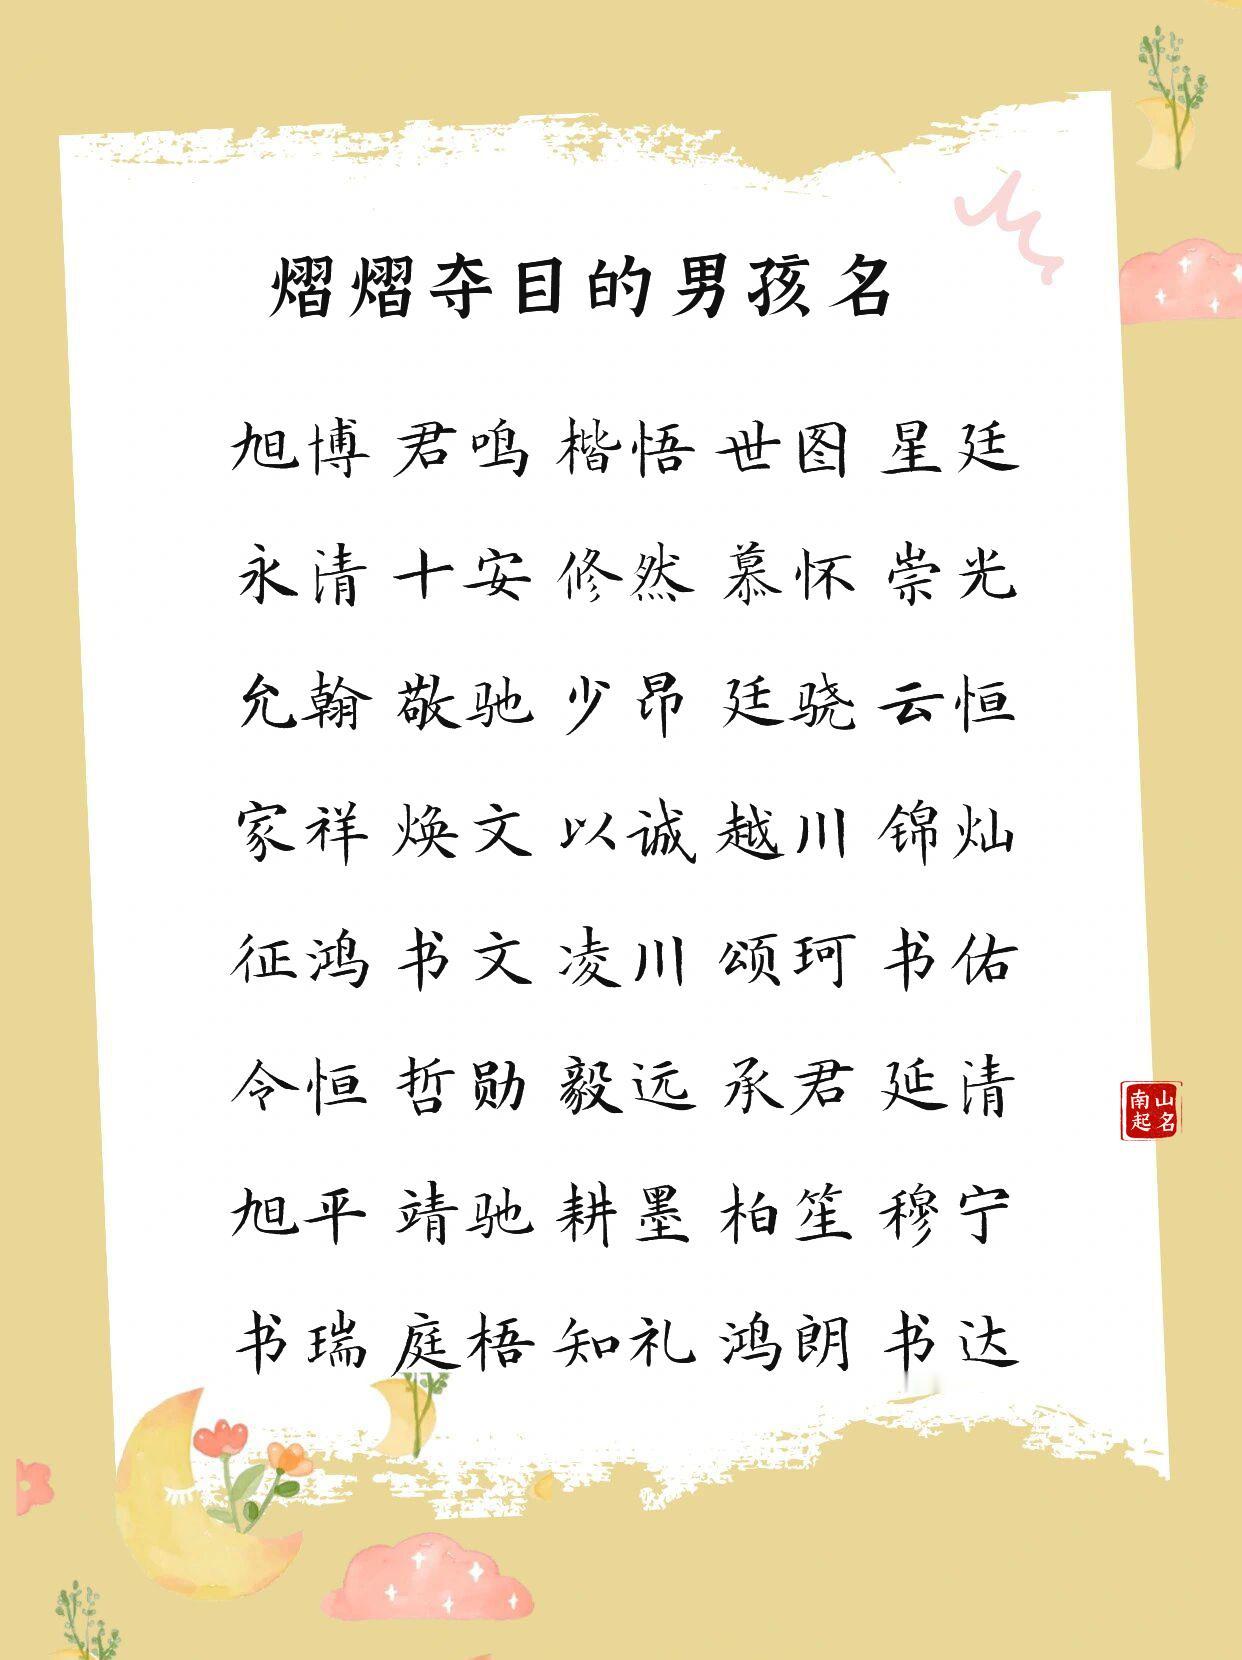 熠熠夺目的男孩名
旭博 君鸣 楷悟 世图 星廷
永清 十安 修然 慕怀 崇光
允翰 敬驰 少昂 廷骁 云恒
家祥 焕文 以诚 越川 锦灿
征鸿 书文 凌川 颂珂 书佑
令恒 哲勋 毅远 承君 延清
南山
起名
旭平 靖驰 耕墨 柏笙 穆宁
书瑞 庭梧 知礼 鸿朗 书达